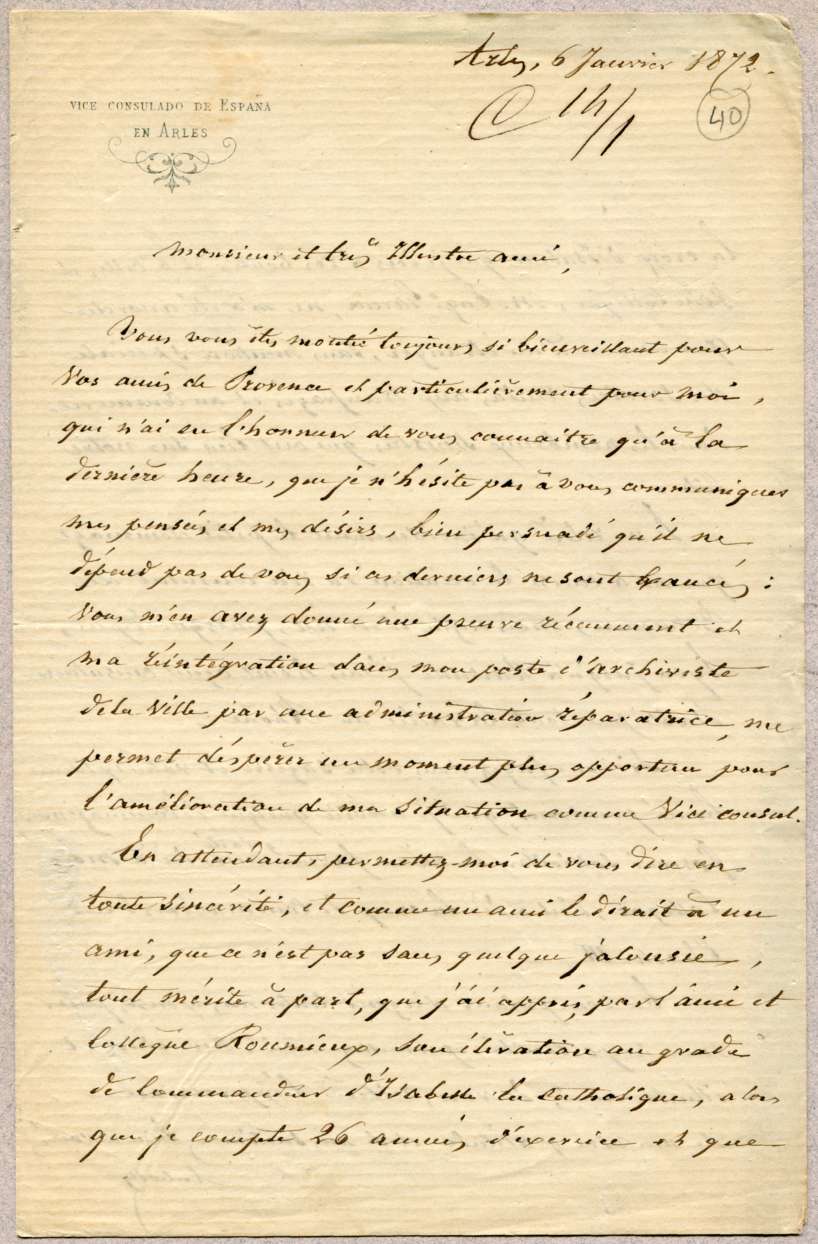 Arles, 6 Janvier 1872.
VICE CONSULADO DE ESPAÑA
EN ARLES
C 14/1
40
Monsieur et très Illustre ami,
Vous vous êtes montré toujours si bienveillant pour
Vos amis de Provence et particulièrement pour moi,
qui n'ai eu l'honneur de vous connaitre qu'à la
dernière heure, que je n'hésite pas à vous communiquer
mes pensées et mes désirs, bien persuadé qu'il ne
dépend pas de vous si ces derniers ne sont exaucés :
Vous m'en avez donné une preuve récemment et
ma réintégration dans mon poste d'archiviste
de la Ville par une administration réparatrice, me
permet d'espérer un moment plus opportun pour
l'amélioration de ma situation comme Vice consul.
En attendant, permettez-moi de vous dire en
toute sincérité, et comme un ami le dirait à un
ami, que ce n'est pas sans quelque jalousie,
tout mérite à part, que j'ai appris, par l'ami et
collègue Roumieux, son élévation au grade
de Commandeur d'Isabelle la Catholique, alors
que je compte 26 années d'exercice et que